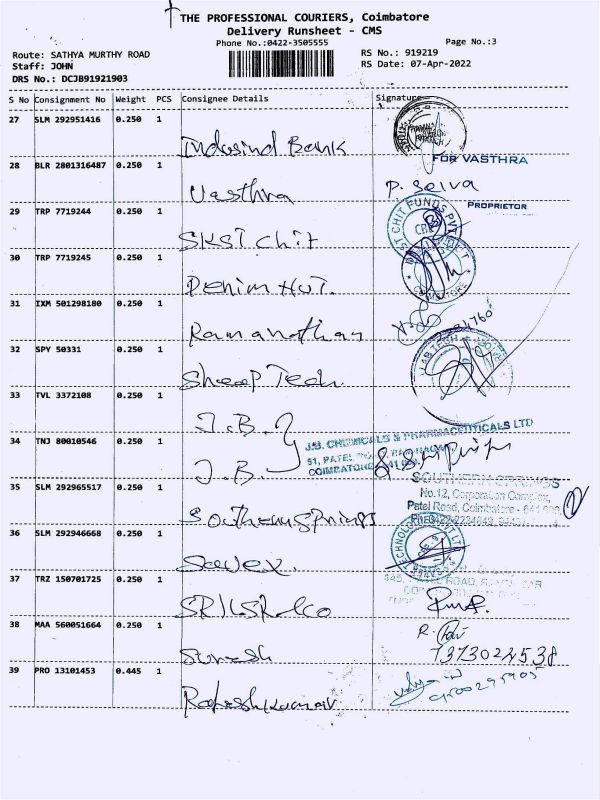 THE PROFESSIONAL COURIERS, Coimbatore
Delivery Runsheet - CMS
Phone No.:0422-3505555
Page No.:3
Route: SATHYA MURTHY ROAD
RS No.: 919219
Staff: JOHN
RS Date: 07-Apr-2022
DRS No.: DCJB91921903
S No Consignment No Weight PCS Consignee Details Signature
27 SLM 292951416 0.250 1
Indusind Bank
FOR VASTHRA
28 BLR 2801316487 0.250 1
Vasthra P. Selva
PROPRIETOR
29 TRP 7719244 0.250 1
SKST Chit
30 TRP 7719245 0.250 1
Denim Hut.
COIMBATORE
31 IXM 501298180 0.250 1
Ramanathan
32 SPY 50331 0.250 1
Sheap Tech
33 TVL 3372108 0.250 1
J.B.
J.B. CHEMICALS & PHARMACEUTICALS LTD
34 TNJ 80010546 0.250 1
51, PATEL
COIMBATORE
J.B.
35 SLM 292965517 0.250 1
SOUTHERN SPRINGS
No.12, Corporation Complex,
Patel Road, Coimbatore - 641 009.
Southern Springs
36 SLM 292946668 0.250 1
Savex.
37 TRZ 150701725 0.250 1
38 MAA 560051664 0.250 1
Suresh
7373024538
39 PRO 13101453 0.445 1
Rakeshkumar